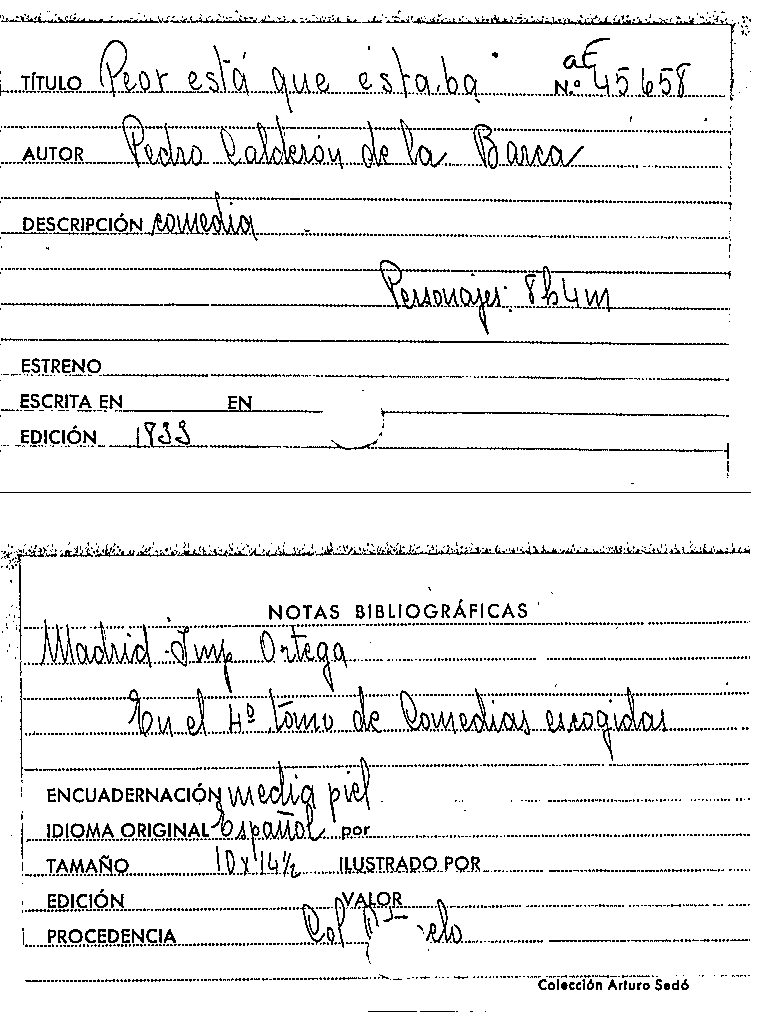 TÍTULO Peor está que estaba aE N.º 45658
AUTOR Pedro Calderón de la Barca
DESCRIPCIÓN comedia
Personajes: 8h4m
ESTRENO
ESCRITA EN EN
EDICIÓN 1833
NOTAS BIBLIOGRÁFICAS
Madrid Imp Ortega
En el 4º tomo de Comedias escogidas
ENCUADERNACIÓN media piel
IDIOMA ORIGINAL Español por
TAMAÑO 10x14½ ILUSTRADO POR
EDICIÓN VALOR
PROCEDENCIA Col
Colección Arturo Sedó